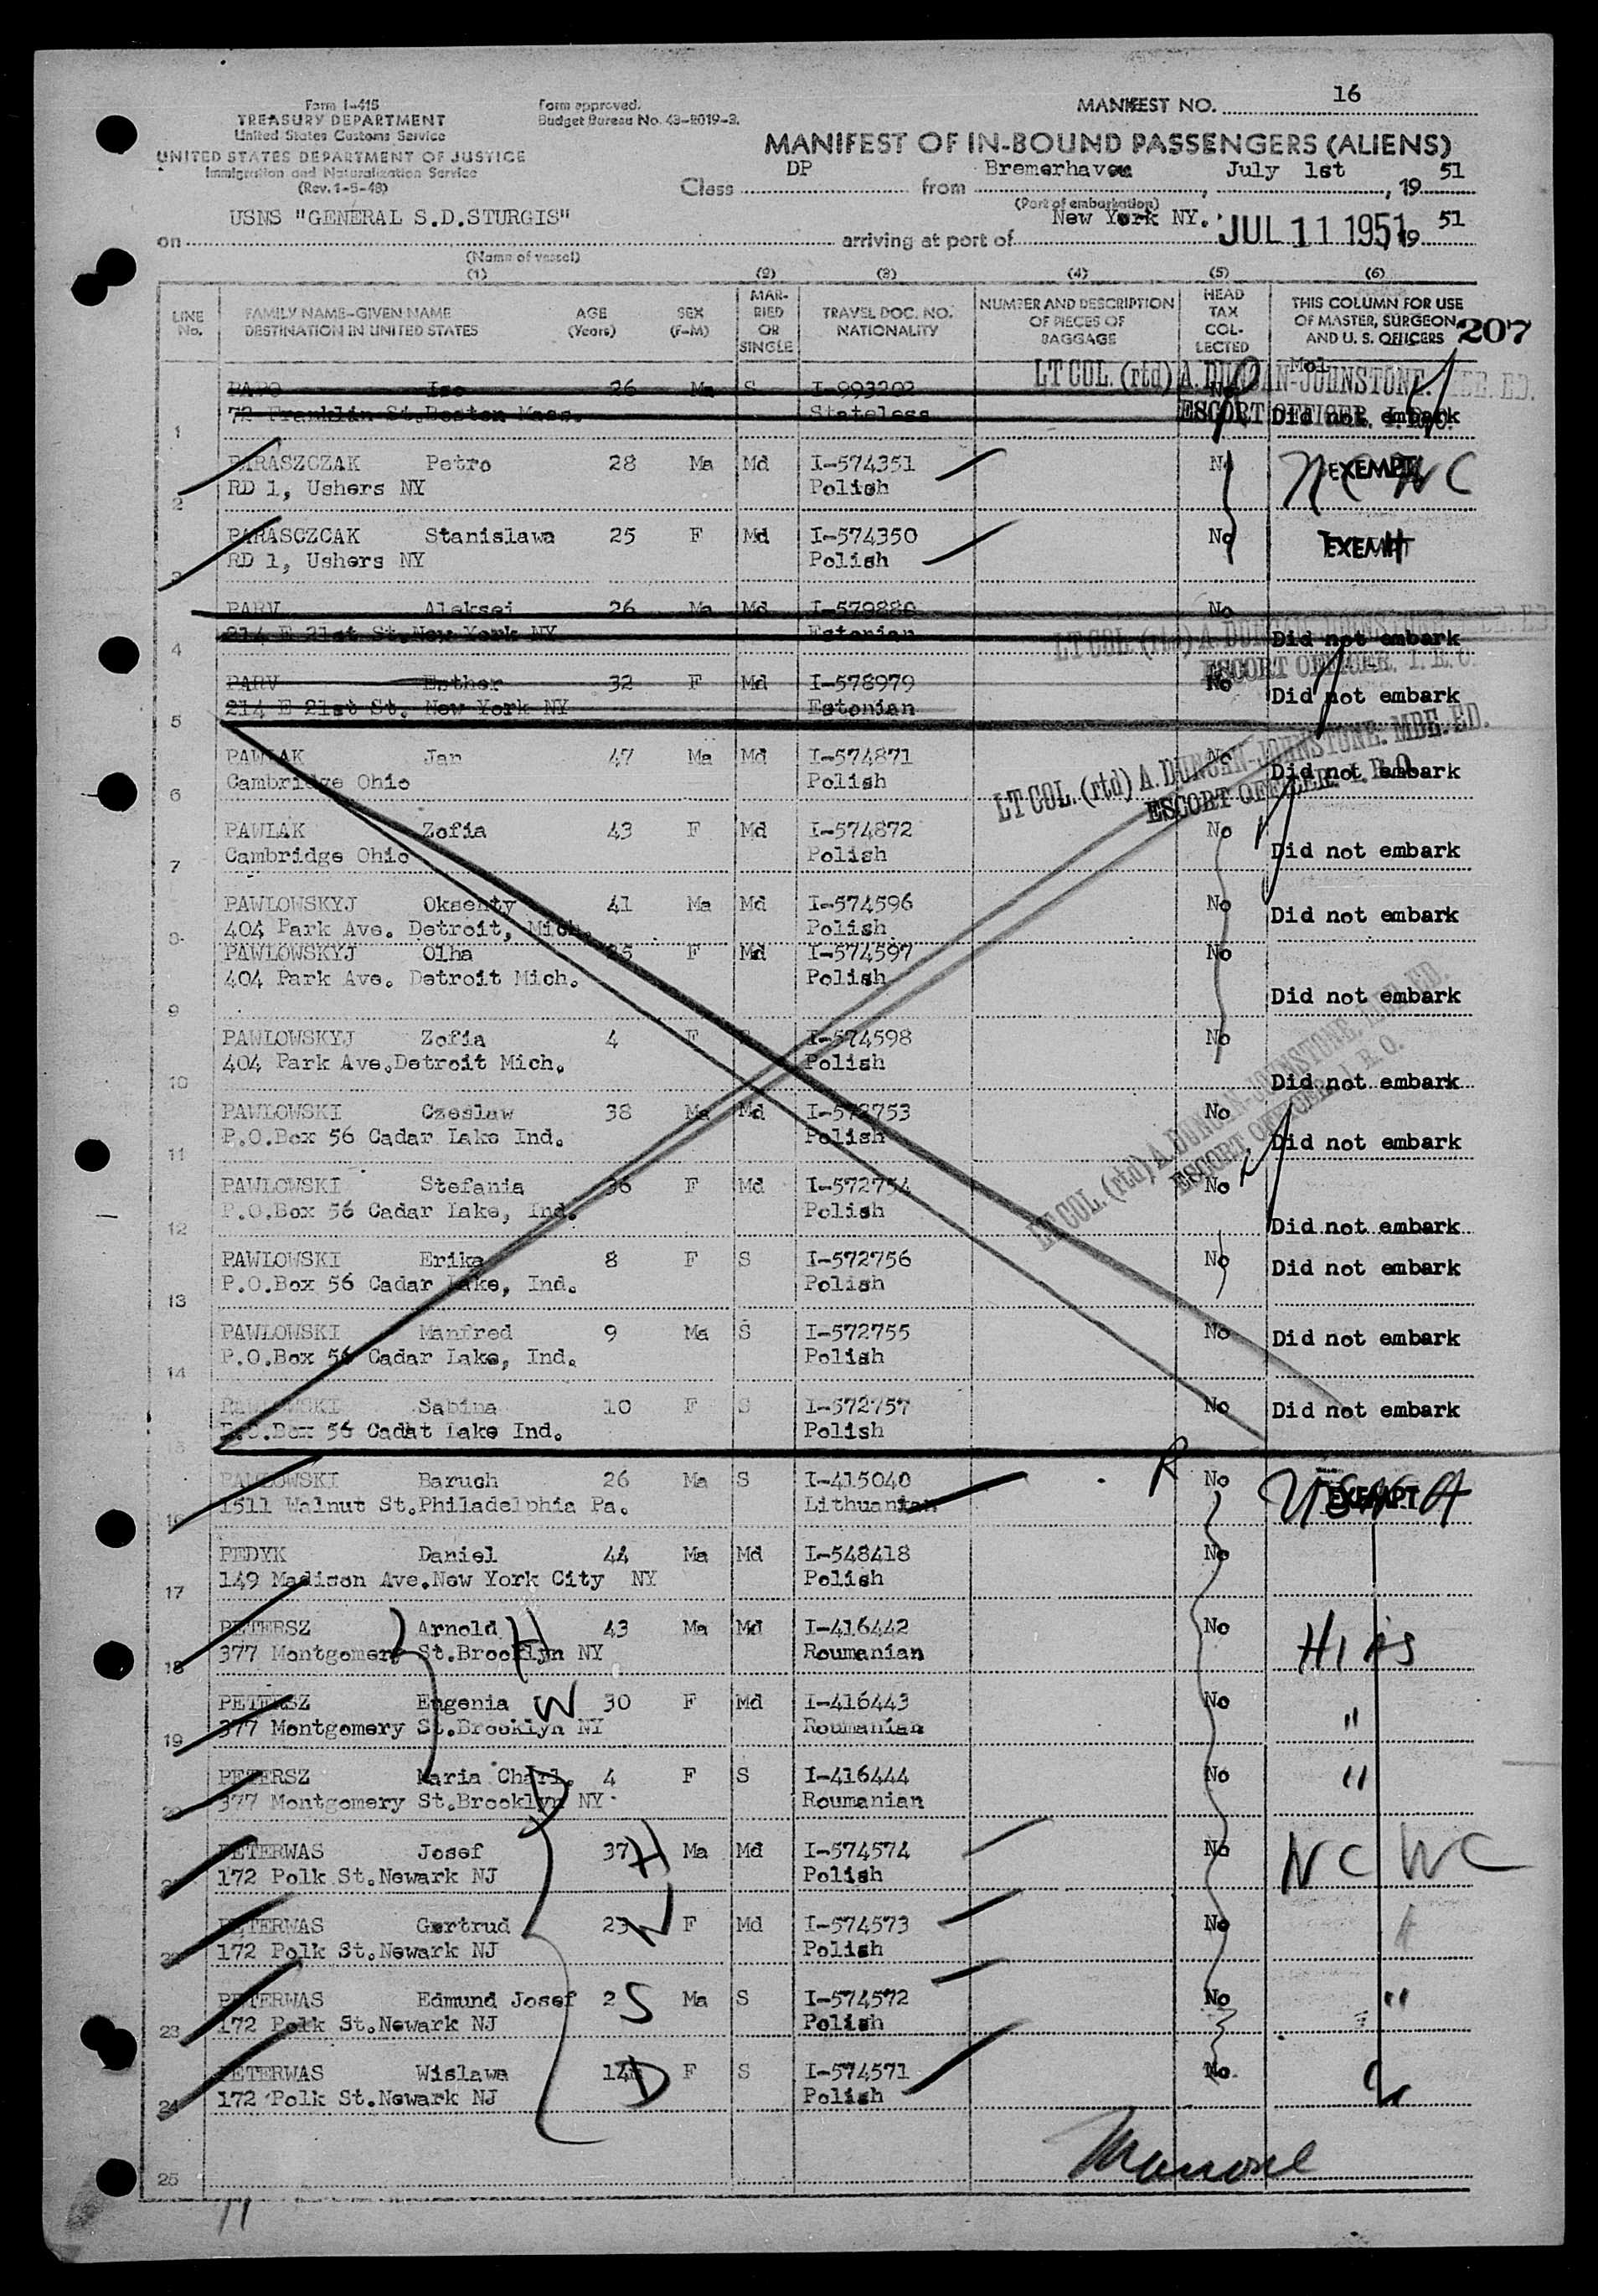 Form I-415
TREASURY DEPARTMENT
United States Customs Service
UNITED STATES DEPARTMENT OF JUSTICE
Immigration and Naturalization Service
(Rev. 1-5-48)
Form approved.
Budget Bureau No. 43-R019-3.
MANIFEST NO. 16
MANIFEST OF IN-BOUND PASSENGERS (ALIENS)
Class DP from Bremerhaven, July 1st, 19 51
(Port of embarkation)
on USNS "GENERAL S.D.STURGIS" arriving at port of New York NY. JUL 11 1951, 19 51
(Name of vessel)
(1) (2) (3) (4) (5) (6)
LINE No. FAMILY NAME-GIVEN NAME DESTINATION IN UNITED STATES AGE (Years) SEX (F-M) MARRIED OR SINGLE TRAVEL DOC. NO. NATIONALITY NUMBER AND DESCRIPTION OF PIECES OF BAGGAGE HEAD TAX COLLECTED THIS COLUMN FOR USE OF MASTER, SURGEON, AND U. S. OFFICERS 207
LT COL. (rtd) A. DUNCAN-JOHNSTONE. MBE. ED.
ESCORT OFFICER, I. R. O.
PAPO Iso 26 Ma S I-993202 No
1 72 Franklin St.Boston Mass. Stateless Did not embark
PARASZCZAK Petro 28 Ma Md I-574351 No EXEMPT NCWC
2 RD 1, Ushers NY Polish
PARASCZCAK Stanislawa 25 F Md I-574350 No EXEMPT
3 RD 1, Ushers NY Polish
PARV Aleksei 26 Ma Md I-579880 No
4 214 E 21st St.New York NY Estonian Did not embark
LT COL. (rtd) A. DUNCAN-JOHNSTONE. MBE. ED.
ESCORT OFFICER, I. R. O.
PARV Esther 32 F Md I-578979 No
5 214 E 21st St. New York NY Estonian Did not embark
PAWLAK Jan 47 Ma Md I-574871 No
6 Cambridge Ohio Polish Did not embark
LT COL. (rtd) A. DUNCAN-JOHNSTONE. MBE. ED.
ESCORT OFFICER, I. R. O.
PAWLAK Zofia 43 F Md I-574872 No
7 Cambridge Ohio Polish Did not embark
PAWLOWSKYJ Oksenty 41 Ma Md I-574596 No
8 404 Park Ave. Detroit, Mich. Polish Did not embark
PAWLOWSKYJ Olha 35 F Md I-574597 No
9 404 Park Ave. Detroit Mich. Polish Did not embark
PAWLOWSKYJ Zofia 4 F I-574598 No
10 404 Park Ave.Detroit Mich. Polish Did not embark
PAWLOWSKI Czeslaw 38 Ma Md I-572753 No
11 P.O.Box 56 Cadar Lake Ind. Polish Did not embark
LT COL. (rtd) A. DUNCAN-JOHNSTONE. MBE. ED.
ESCORT OFFICER, I. R. O.
PAWLOWSKI Stefania 36 F Md I-572754 No
12 P.O.Box 56 Cadar Lake, Ind. Polish Did not embark
PAWLOWSKI Erika 8 F S I-572756 No
13 P.O.Box 56 Cadar Lake, Ind. Polish Did not embark
PAWLOWSKI Manfred 9 Ma S I-572755 No
14 P.O.Box 56 Cadar Lake, Ind. Polish Did not embark
PAWLOWSKI Sabina 10 F S I-572757 No
15 P.O.Box 56 Cadat Lake Ind. Polish Did not embark
PAWLOWSKI Baruch 26 Ma S I-415040 R No USNA EXEMPT
16 1511 Walnut St.Philadelphia Pa. Lithuanian
PEDYK Daniel 44 Ma Md I-548418 No
17 149 Madison Ave.New York City NY Polish
PETERSZ Arnold H 43 Ma Md I-416442 No HIAS
18 377 Montgomery St.Brooklyn NY Roumanian
PETERSZ Eugenia W 30 F Md I-416443 No "
19 377 Montgomery St.Brooklyn NY Roumanian
PETERSZ Maria Charl. D 4 F S I-416444 No "
20 377 Montgomery St.Brooklyn NY Roumanian
PETERWAS Josef 37 H Ma Md I-574574 No NCWC
21 172 Polk St.Newark NJ Polish
PETERWAS Gertrud 23 W F Md I-574573 No
22 172 Polk St.Newark NJ Polish
PETERWAS Edmund Josef 2 S Ma S I-574572 No "
23 172 Polk St.Newark NJ Polish
PETERWAS Wislawa D F S I-574571 No
24 172 Polk St.Newark NJ Polish
25
11